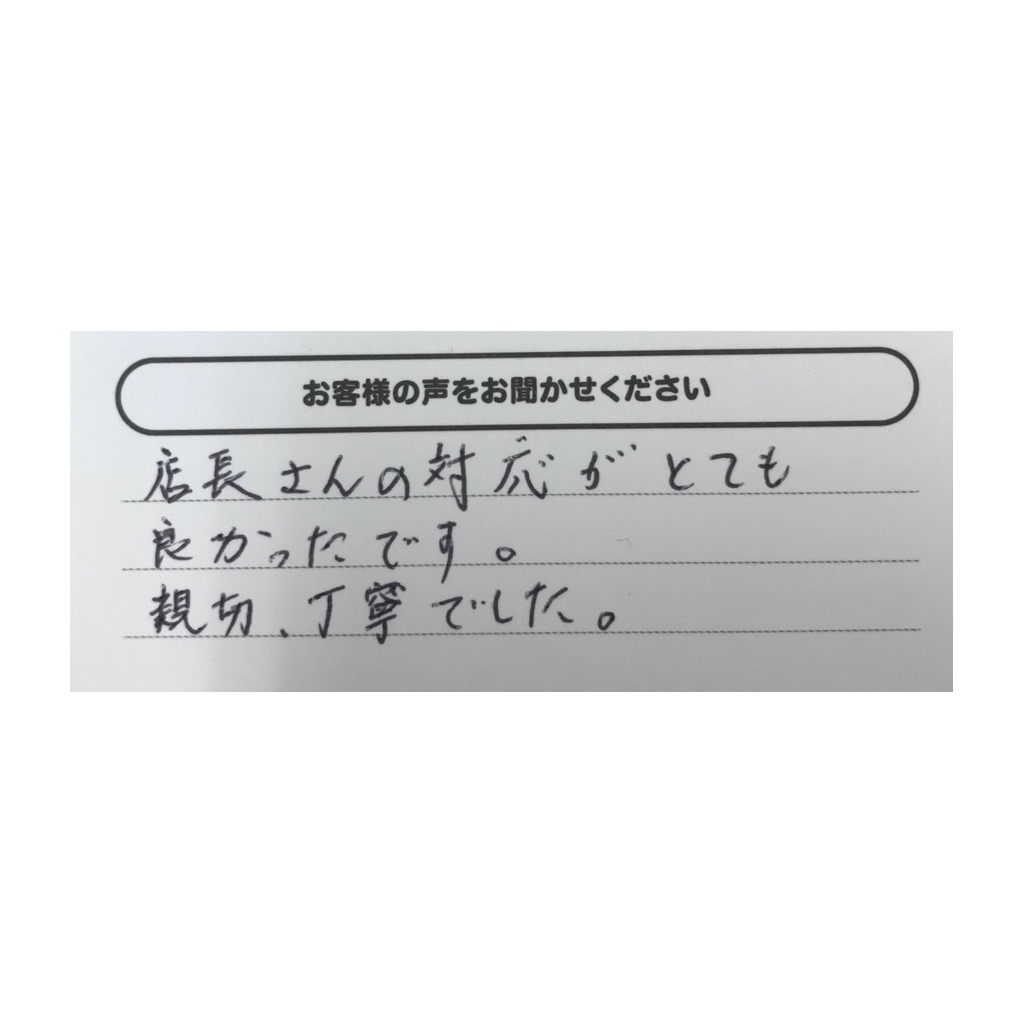 お客様の声をお聞かせください
店長さんの対応がとても
良かったです。
親切、丁寧でした。